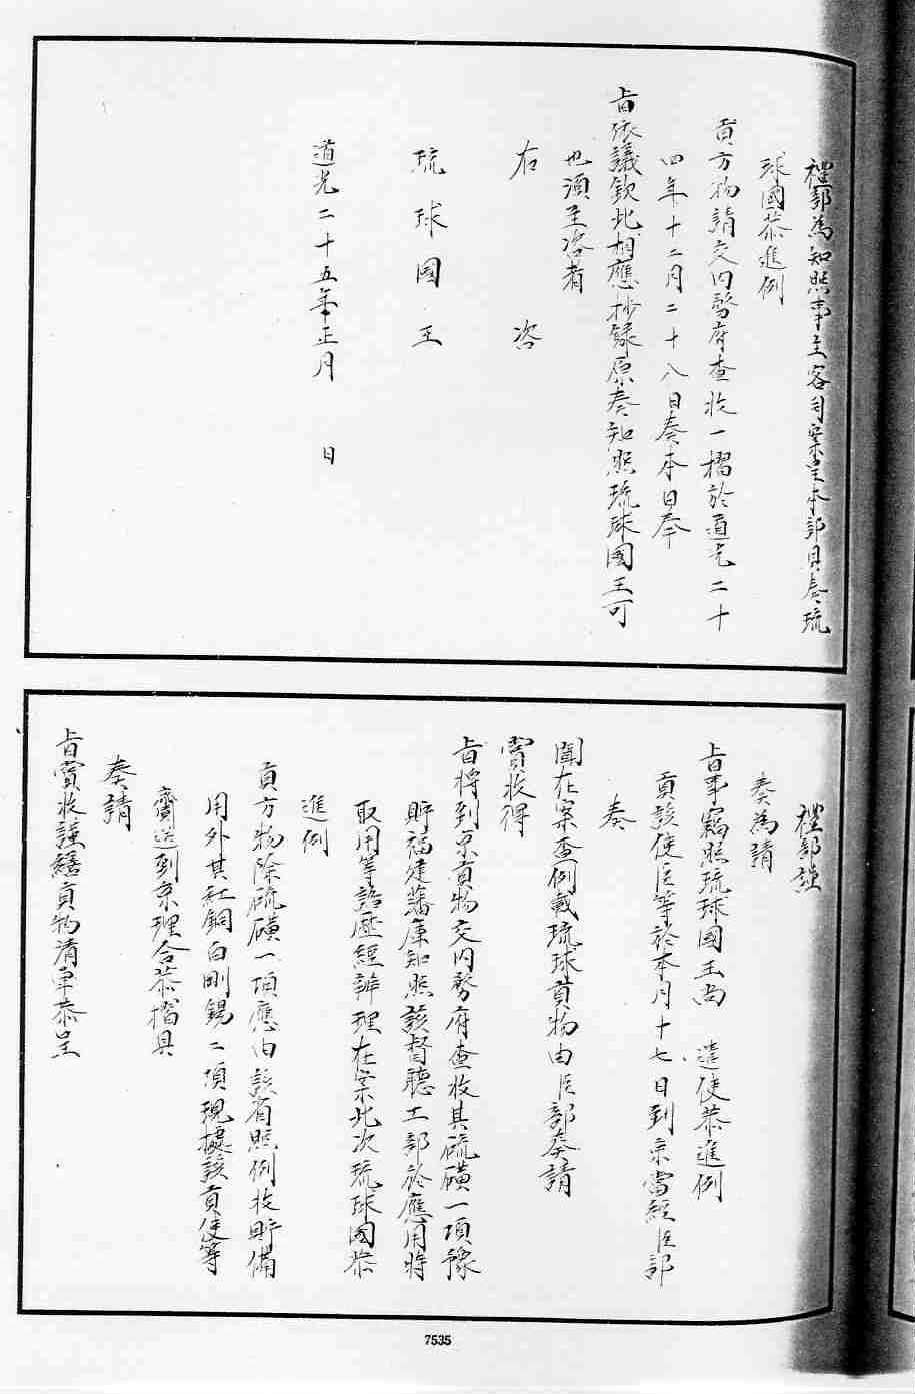 禮部為知照事主客司案呈本部具奏琉
球國恭進例
貢方物請交內務府查收一摺於道光二十
四年十二月二十八日奏本日奉
旨依議欽此相應抄錄原奏知照琉球國王可
也須至咨者
右 咨
琉球國王
道光二十五年正月 日
禮部謹
奏為請
旨事竊照琉球國王尚 遣使恭進例
貢該使臣等於本月十七日到京當經臣部
奏
聞在案查例載琉球貢物由臣部奏請
賞收得
旨將到京貢物交內務府查收其硫磺一項豫
貯福建藩庫知照該督聽工部於應用時
取用等語歷經辦理在案此次琉球國恭
進例
貢方物除硫磺一項應由該省照例收貯備
用外其紅銅白剛錫二項現據該貢使等
齎送到京理合恭摺具
奏請
旨賞收謹繕貢物清單恭呈
7535